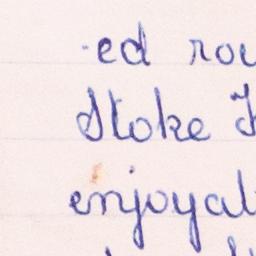 -ed rou
Stoke
enjoyal